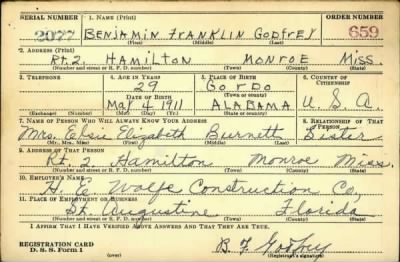 SERIAL NUMBER 1. NAME (Print) ORDER NUMBER
2077 BENJAMIN FRANKLIN GODFREY 659
(First) (Middle) (Last)
2. ADDRESS (Print)
Rt. 2 HAMILTON MONROE MISS.
(Number and street or R. F. D. number) (Town) (County) (State)
3. TELEPHONE 4. AGE IN YEARS 5. PLACE OF BIRTH 6. COUNTRY OF CITIZENSHIP
29 GORDO
DATE OF BIRTH (Town or county)
MAY 4 1911 ALABAMA U.S.A.
(Exchange) (Number) (Mo.) (Day) (Yr.) (State or country)
7. NAME OF PERSON WHO WILL ALWAYS KNOW YOUR ADDRESS 8. RELATIONSHIP OF THAT PERSON
Mrs. Elsie Elizabeth Burnett Sister
(Mr., Mrs., Miss) (First) (Middle) (Last)
9. ADDRESS OF THAT PERSON
Rt. 2 Hamilton Monroe Miss.
(Number and street or R. F. D. number) (Town) (County) (State)
10. EMPLOYER'S NAME
H. E. Wolfe Construction Co,
11. PLACE OF EMPLOYMENT OR BUSINESS
St. Augustine Florida
(Number and street or R. F. D. number) (Town) (County) (State)
I AFFIRM THAT I HAVE VERIFIED ABOVE ANSWERS AND THAT THEY ARE TRUE.
REGISTRATION CARD
D. S. S. Form 1 (over) B. F. Godfrey
(Registrant's signature)